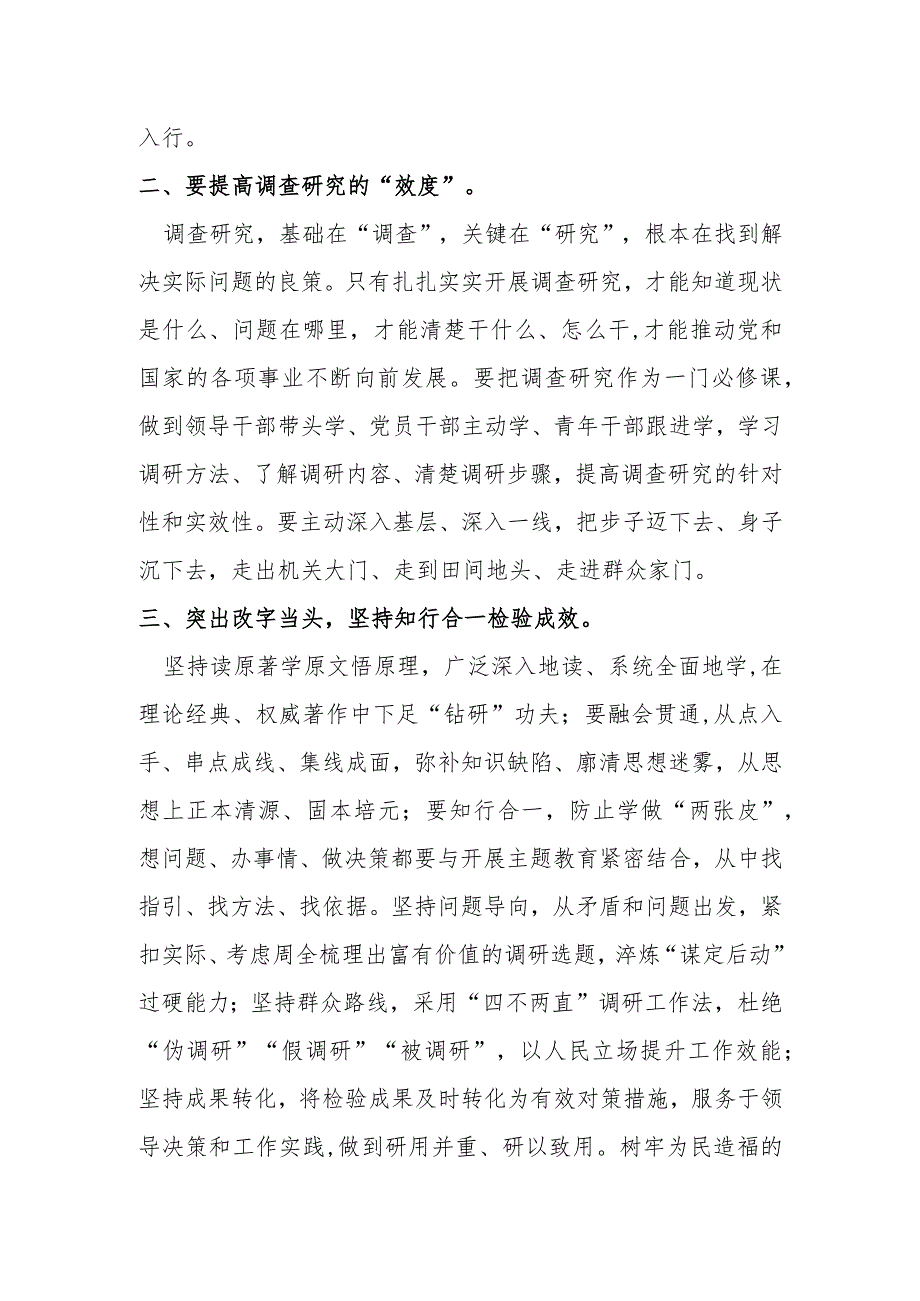 入行。
二、要提高调查研究的“效度”。
调查研究，基础在“调查”，关键在“研究”，根本在找到解
决实际问题的良策。只有扎扎实实开展调查研究，才能知道现状
是什么、问题在哪里，才能清楚干什么、怎么干,才能推动党和
国家的各项事业不断向前发展。要把调查研究作为一门必修课，
做到领导干部带头学、党员干部主动学、青年干部跟进学，学习
调研方法、了解调研内容、清楚调研步骤，提高调查研究的针对
性和实效性。要主动深入基层、深入一线，把步子迈下去、身子
沉下去，走出机关大门、走到田间地头、走进群众家门。
三、突出改字当头，坚持知行合一检验成效。
坚持读原著学原文悟原理，广泛深入地读、系统全面地学,在
理论经典、权威著作中下足“钻研”功夫；要融会贯通,从点入
手、串点成线、集线成面，弥补知识缺陷、廓清思想迷雾，从思
想上正本清源、固本培元；要知行合一，防止学做“两张皮”，
想问题、办事情、做决策都要与开展主题教育紧密结合，从中找
指引、找方法、找依据。坚持问题导向，从矛盾和问题出发，紧
扣实际、考虑周全梳理出富有价值的调研选题，淬炼“谋定后动”
过硬能力；坚持群众路线，采用“四不两直”调研工作法，杜绝
“伪调研”“假调研”“被调研”，以人民立场提升工作效能；
坚持成果转化，将检验成果及时转化为有效对策措施，服务于领
导决策和工作实践,做到研用并重、研以致用。树牢为民造福的